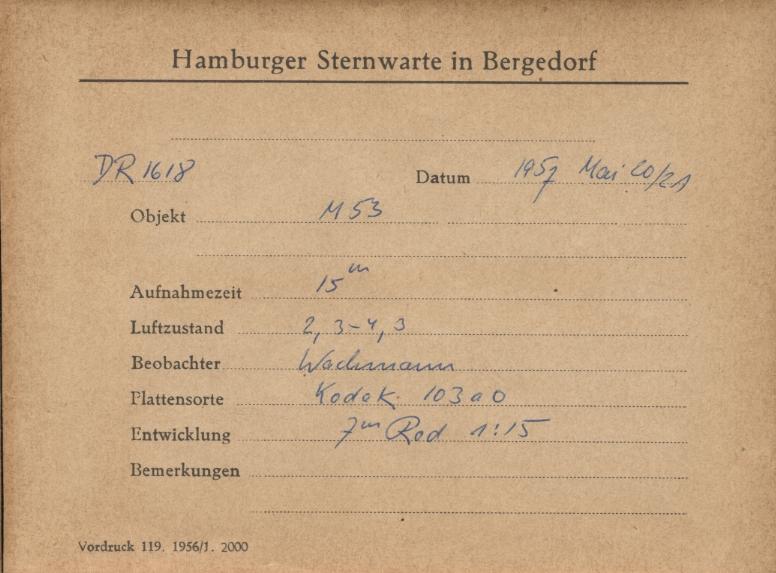 Hamburger Sternwarte in Bergedorf
DR 1618 Datum 1957 Mai 20/21
Objekt M 53
Aufnahmezeit 15ᵐ
Luftzustand 2, 3-4, 3
Beobachter Wachmann
Plattensorte Kodak 103 a O
Entwicklung 7ᵐ Rod 1:15
Bemerkungen
Vordruck 119. 1956/1. 2000